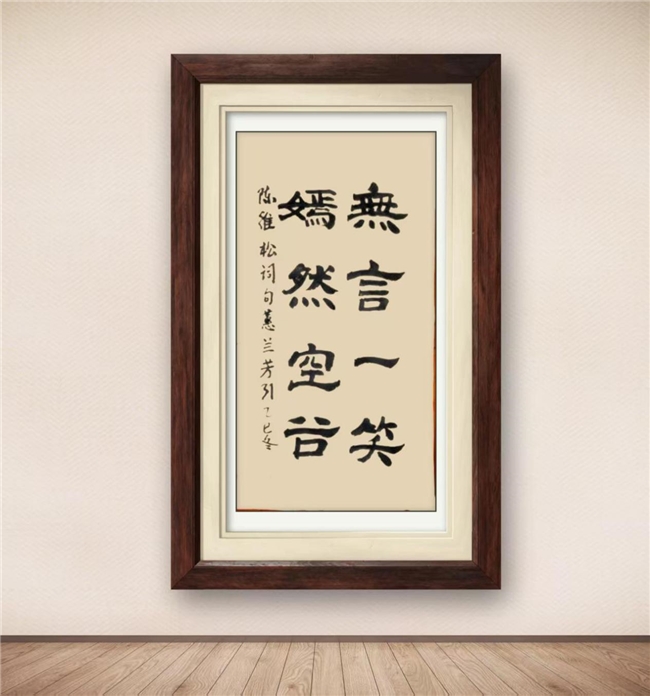 無言一笑
嫣然空谷
陈維松词句蕙兰芳引乙巳冬